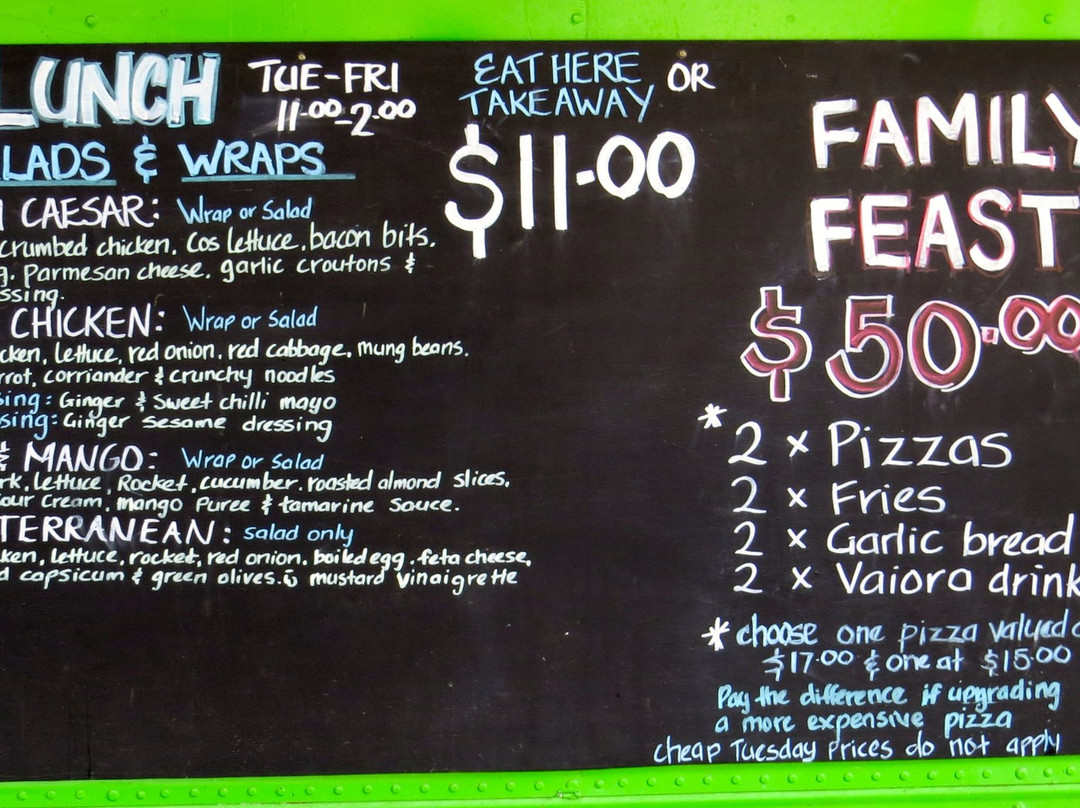 LUNCH TUE-FRI
11-00-2-00
LADS & WRAPS
CAESAR: Wrap or Salad
crumbed chicken. Cos lettuce. bacon bits.
Parmesan cheese. garlic croutons &
ssing.
CHICKEN: Wrap or Salad
cken, lettuce, red onion. red cabbage, mung beans.
rrot, corriander & crunchy noodles
sing: Ginger & Sweet chilli mayo
sing: Ginger sesame dressing
& MANGO: Wrap or Salad
rk, lettuce, Rocket, cucumber. roasted almond slices,
our Cream, mango Puree & tamarine Sauce.
TERRANEAN: salad only
ken, lettuce, rocket, red onion. boiled egg. feta cheese,
d capsicum & green olives. mustard Vinaigrette
EAT HERE OR
TAKEAWAY
$11-00
FAMILY
FEAST
$50.00
* 2 x Pizzas
2 x Fries
2 x Garlic bread
2 x Vaiora drink
* choose one pizza valued
$17.00 & one at $15.00
Pay the difference if upgrading
a more expensive pizza
cheap Tuesday Prices do not apply